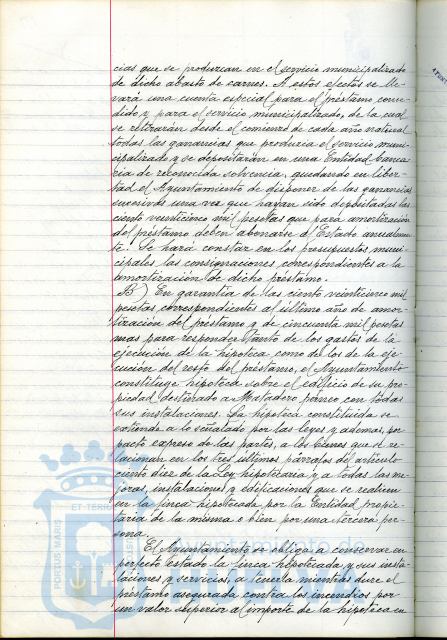 cias que se produzcan en el servicio municipalizado
de dicho abasto de carnes. A estos efectos se lle-
vará una cuenta especial para el préstamo conce-
dido y para el servicio municipalizado, de la cual
se retirarán desde el comienzo de cada año natural
todas las ganancias que produzca el servicio muni-
cipalizado y se depositarán en una Entidad banca
ria de reconocida solvencia, quedando en liber-
tad el Ayuntamiento de disponer de las ganancias
sucesivas una vez que hayan sido depositadas las
ciento veinticinco mil pesetas que para amortización
del préstamo deben abonarse al Estado anualmen-
te. Se hará constar en los presupuestos muni-
cipales las consignaciones correspondientes a la
amortización de dicho préstamo.
B) En garantía de las ciento veinticinco mil
pesetas correspondientes al último año de amor-
tización del préstamo y de cincuenta mil pesetas
mas para responder tanto de los gastos de la
ejecución de la hipoteca como de los de la eje-
cución del resto del préstamo, el Ayuntamiento
constituye hipoteca sobre el edificio de su pro-
piedad destinado a Matadero público con todas
sus instalaciones. La hipoteca constituida se
extiende a lo señalado por las leyes y además, por
pacto expreso de las partes, a los bienes que se re-
lacionan en los tres últimos párrafos del artículo
ciento diez de la Ley hipotecaria y a todas las me-
joras, instalaciones y edificaciones que se realicen
en la finca hipotecada, por la Entidad propie-
taria de la misma o bien por una tercera per-
sona.
El Ayuntamiento se obliga a conservar en
perfecto estado la finca hipotecada y sus insta-
laciones y servicios, a tenerla mientras dure el
préstamo asegurada contra los incendios por
un valor superior al importe de la hipoteca en
ET TERRAE
PORTUS MARIS
Ayuntamiento de